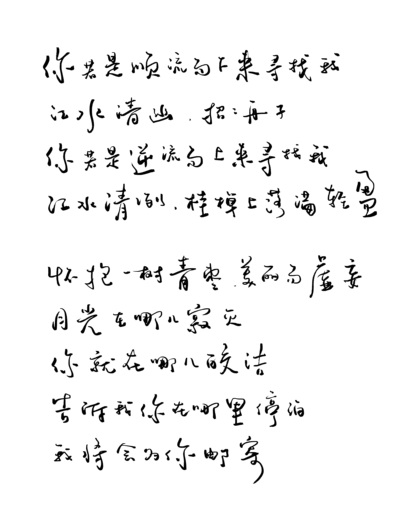 你若是顺流而下来寻找我
江水清幽、招:舟子
你若是逆流而上来寻找我
江水清冽、桂棹上落满轻盈
怀抱一树青枣、美丽而虚妄
月光在哪儿寂灭
你就在哪儿皎洁
告诉我你在哪里停泊
我将会为你邮寄